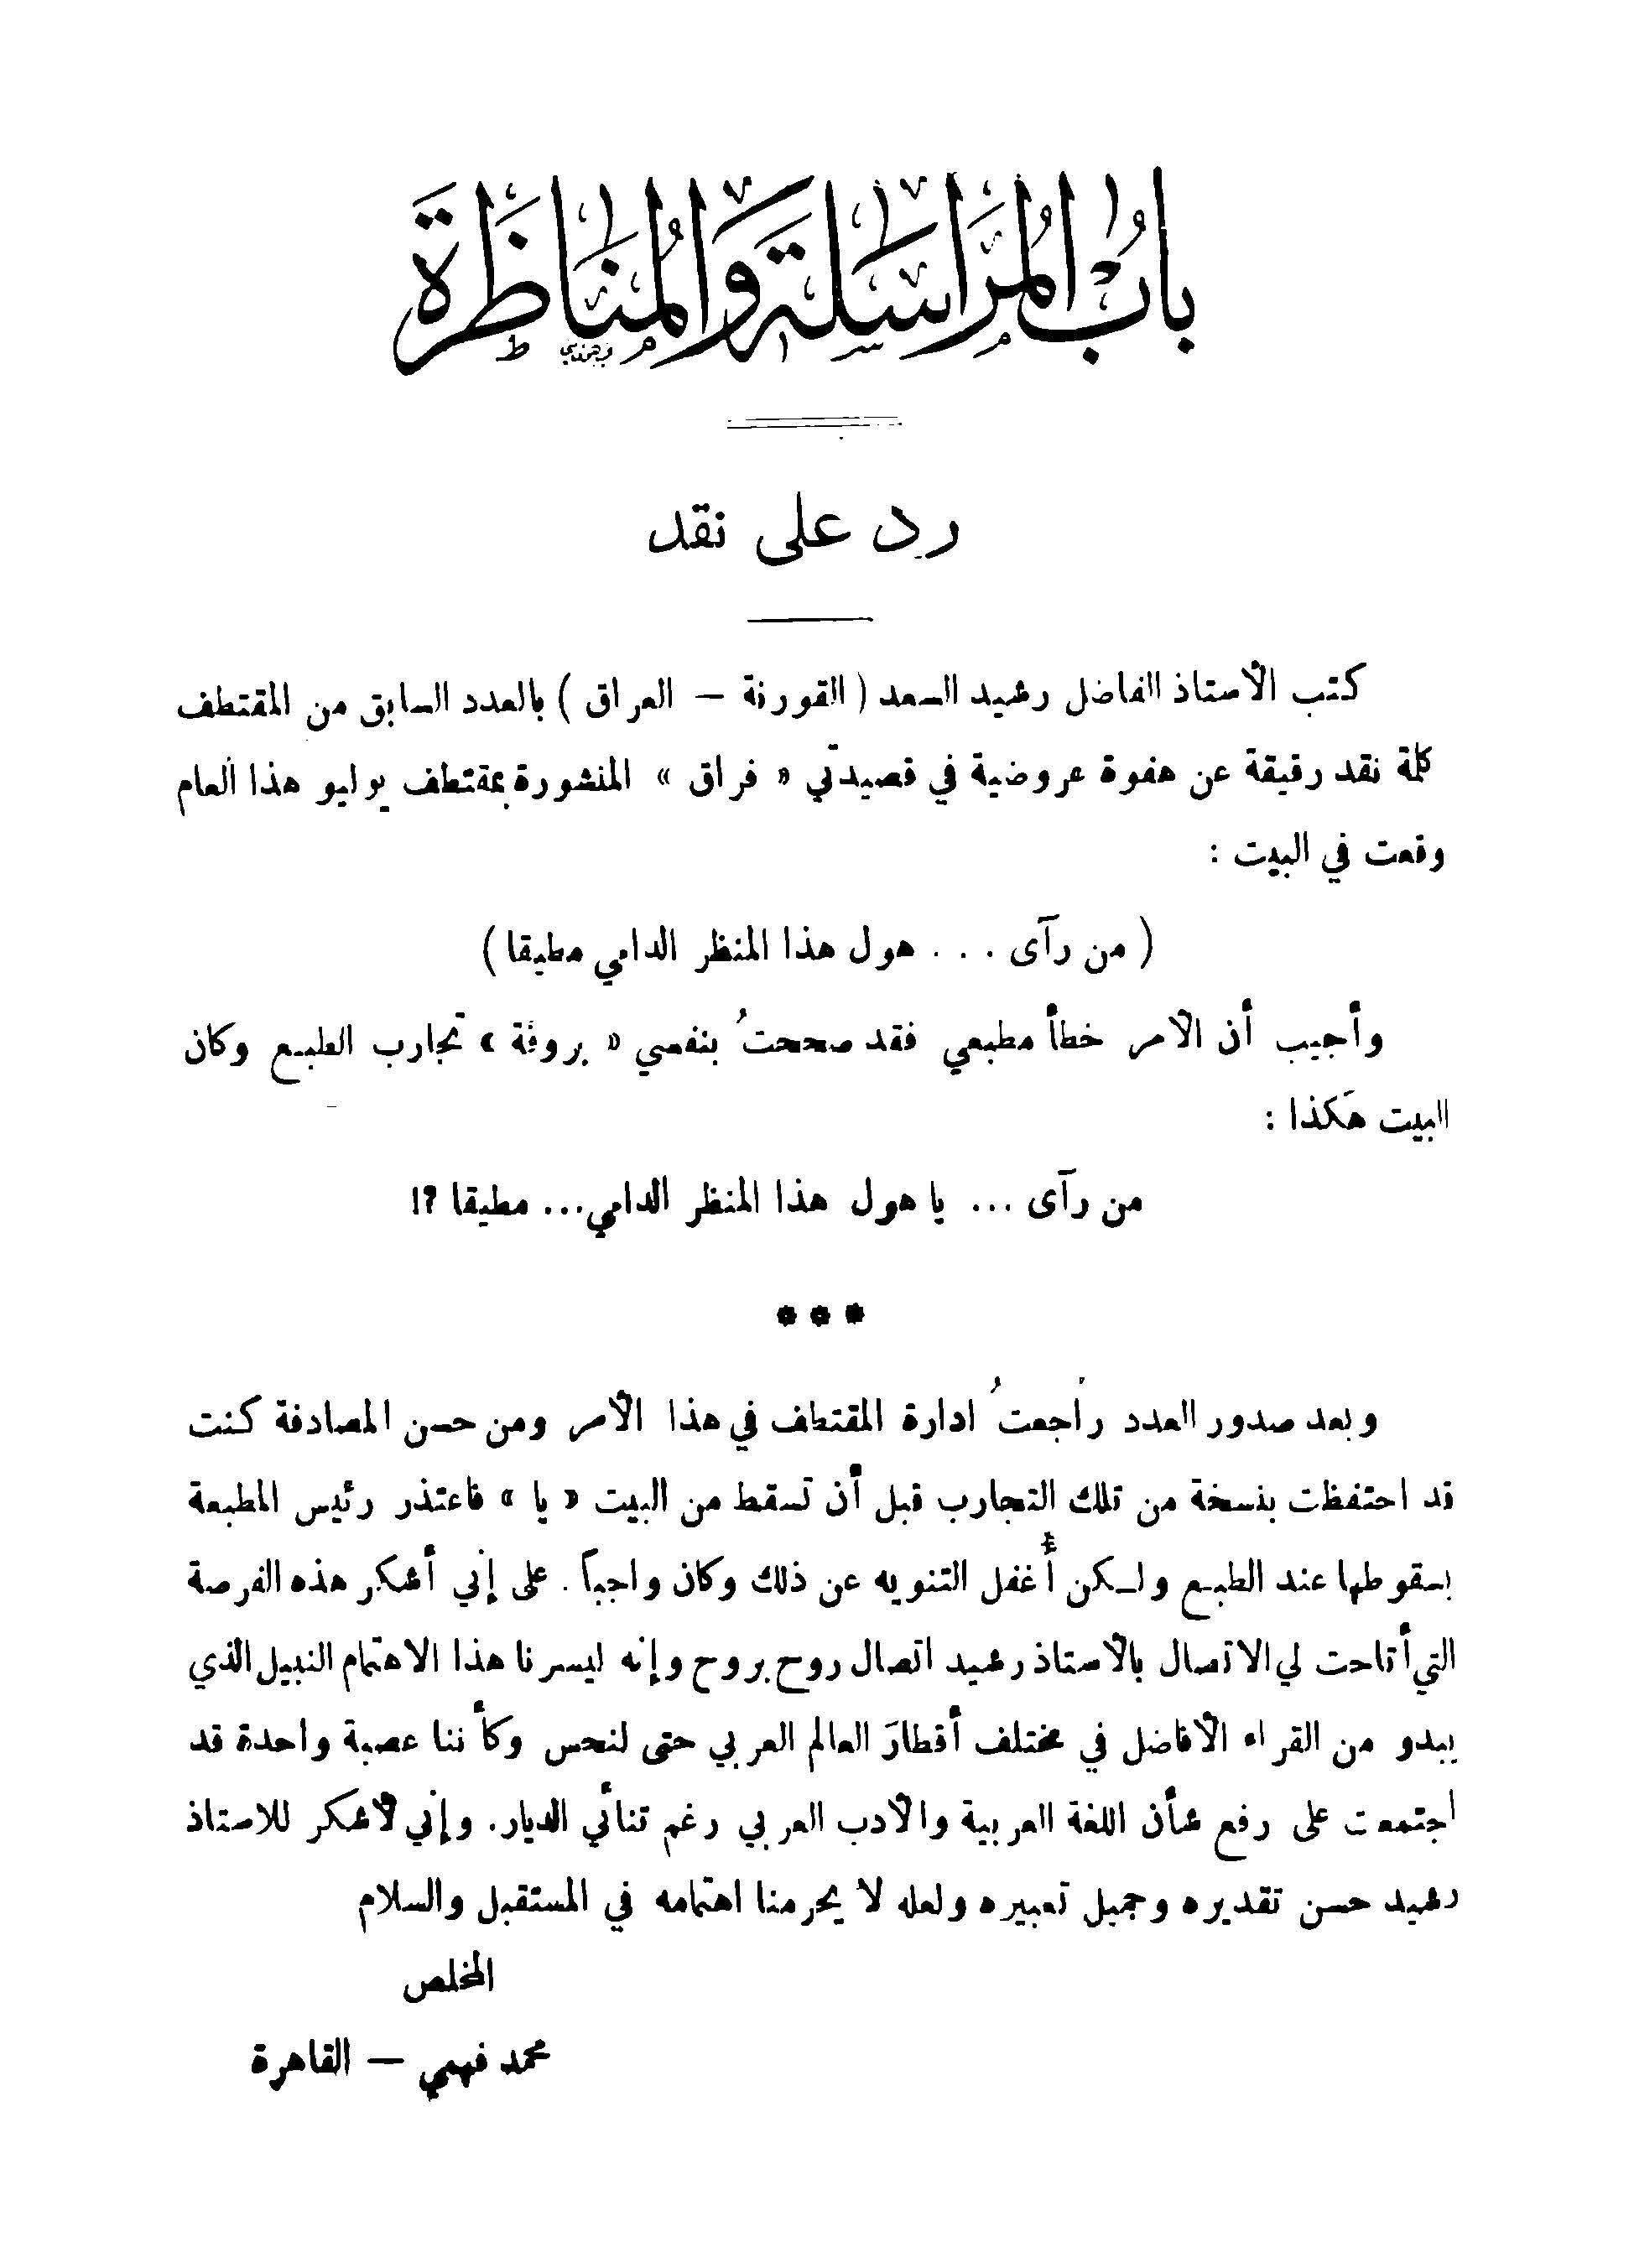 باب المراسلة والمناظرة
رد على نقد
كتب الأستاذ الفاضل رشيد السعد ( القورنة – العراق ) بالعدد السابق من المقتطف
كلمة نقد رقيقة عن هفوة عروضية في قصيدتي « فراق » المنشورة بمقتطف يوليو هذا العام
وقعت في البيت :
( من رآى . . . هول هذا المنظر الدامي مطيقا )
وأجيب أن الأمر خطأ مطبعي فقد صححتُ بنفسي « بروفة » تجارب الطبع وكان
البيت هكذا :
من رآى ... يا هول هذا المنظر الدامي... مطيقا ?!
***
وبعد صدور العدد راجعتُ ادارة المقتطف في هذا الأمر ومن حسن المصادفة كنت
قد احتفظت بنسخة من تلك التجارب قبل أن تسقط من البيت « يا » فاعتذر رئيس المطبعة
بسقوطها عند الطبع ولكن أغفل التنويه عن ذلك وكان واجباً . على إني أشكر هذه الفرصة
التي أتاحت لي الاتصال بالأستاذ رشيد اتصال روح بروح وإنه ليسرنا هذا الاهتمام النبيل الذي
يبدو من القراء الأفاضل في مختلف أقطار العالم العربي حتى لنحس وكأننا عصبة واحدة قد
اجتمعت على رفع شأن اللغة العربية والأدب العربي رغم تنائي الديار. وإني لأشكر للاستاذ
رشيد حسن تقديره وجميل تعبيره ولعله لا يحرمنا اهتمامه في المستقبل والسلام
المخلص
محمد فهمي – القاهرة